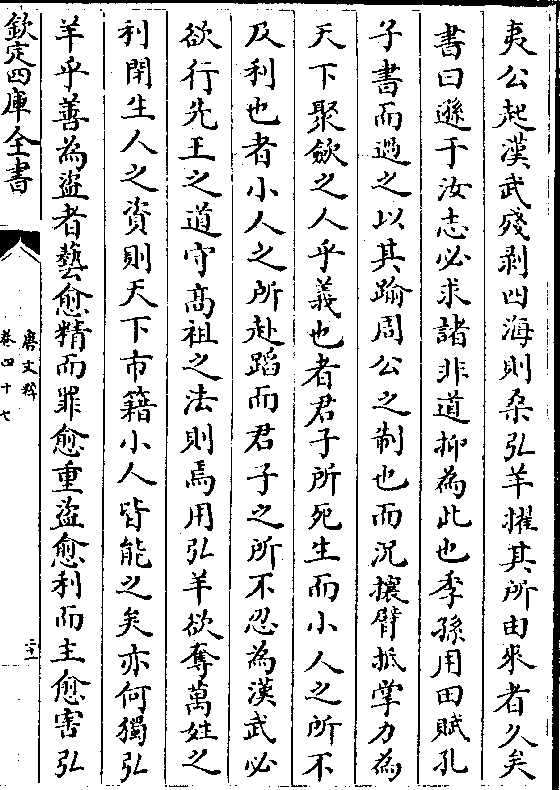 夷公起漢武殘剥四海則桑弘羊擢其所由來者久矣
書曰遜于汝志必求諸非道抑為此也季孫用田賦孔
子書而過之以其踰周公之制也而況攘臂抵掌力為
天下聚斂之人乎義也者君子所死生而小人之所不
及利也者小人之所赴蹈而君子之所不忍為漢武必
欲行先王之道守髙祖之法則焉用弘羊欲奪萬姓之
利閉生人之資則天下市籍小人皆能之矣亦何獨弘
羊乎善為盜者藝愈精而罪愈重盜愈利而主愈害弘
欽定四庫全書
唐文粹
卷四十七